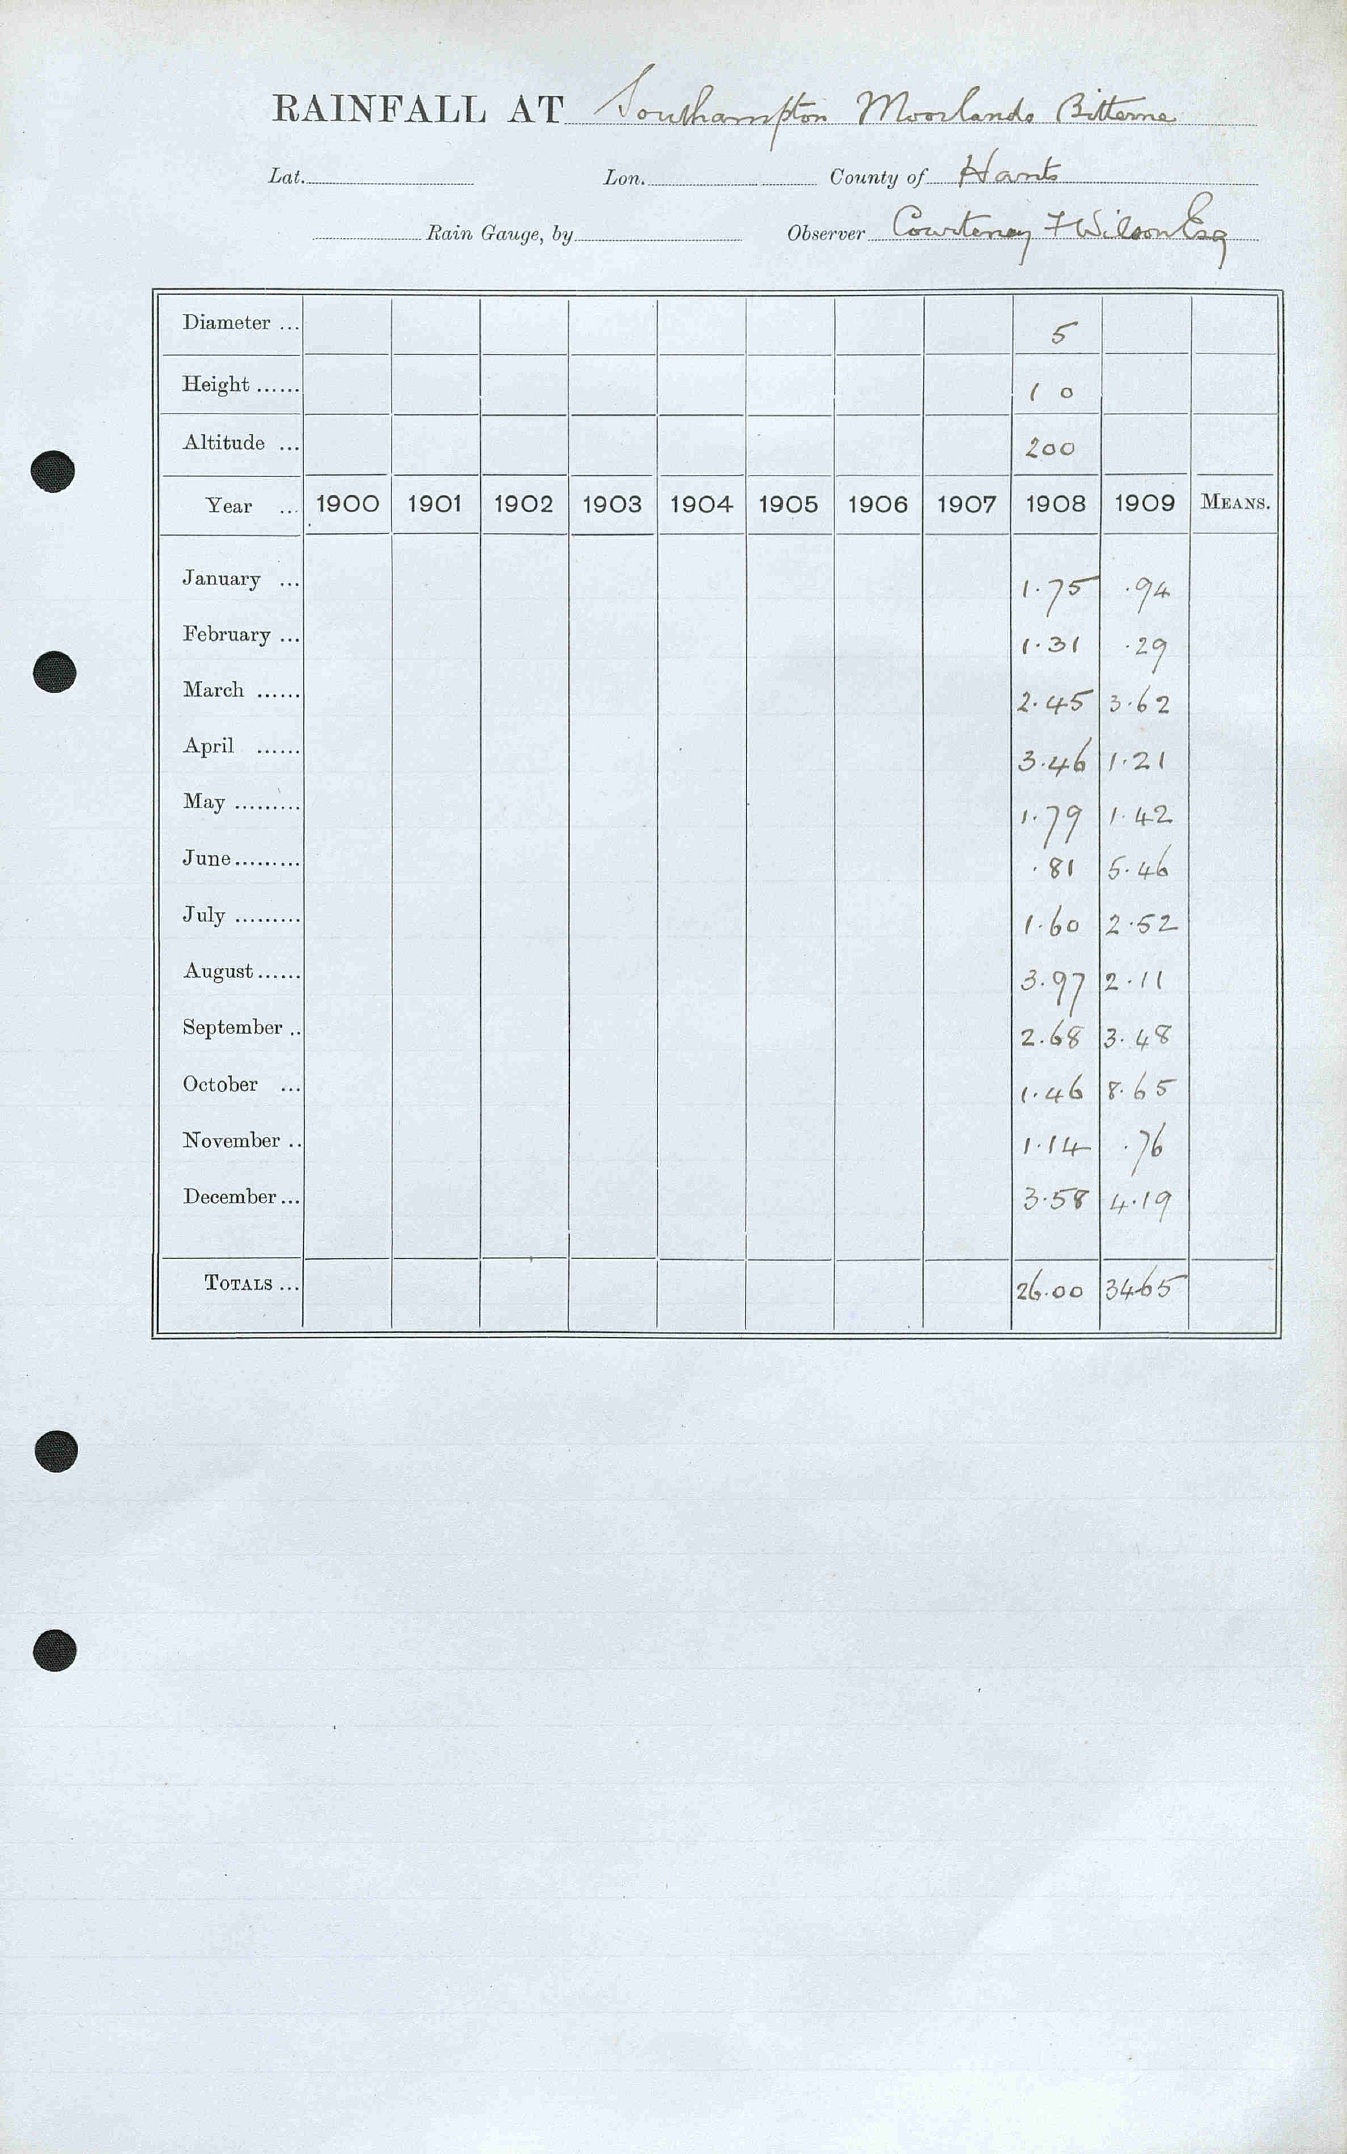 RAINFALL AT Southampton Moorlands Bitterne
Lat. Lon. County of Hants
Rain Gauge, by Observer Courteney F Wilson Esq
Diameter ... 5
Height ...... 1 0
Altitude ... 200
Year ... 1900 1901 1902 1903 1904 1905 1906 1907 1908 1909 MEANS.
January ... 1.75 .94
February ... 1.31 .29
March ...... 2.45 3.62
April ...... 3.46 1.21
May ......... 1.79 1.42
June......... .81 5.46
July ......... 1.60 2.52
August...... 3.97 2.11
September .. 2.68 3.48
October ... 1.46 8.65
November .. 1.14 .76
December... 3.58 4.19
TOTALS ... 26.00 34.65